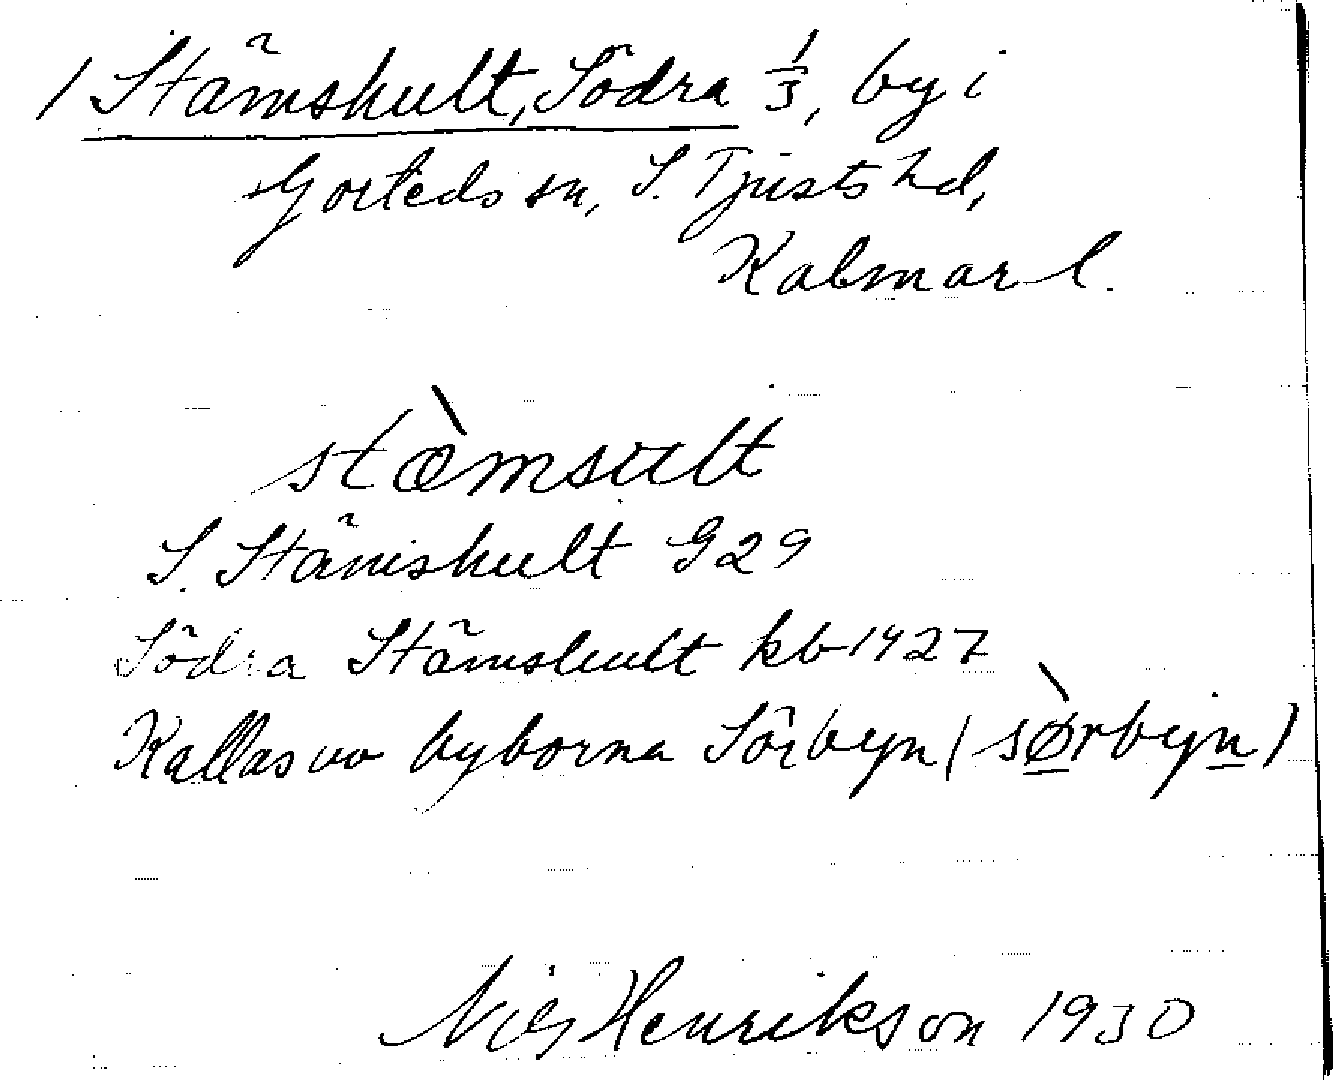 1 Stämshult, Södra 1/3, by i
Gorteds sn, S. Tjusts hd,
Kalmar l.
stæ̀msult
S. Stämshult G29
Södra Stämshult kb 1927
Kallas av byborna Sörbyn (sø̀rbyn)
Nils Henrikson 1930